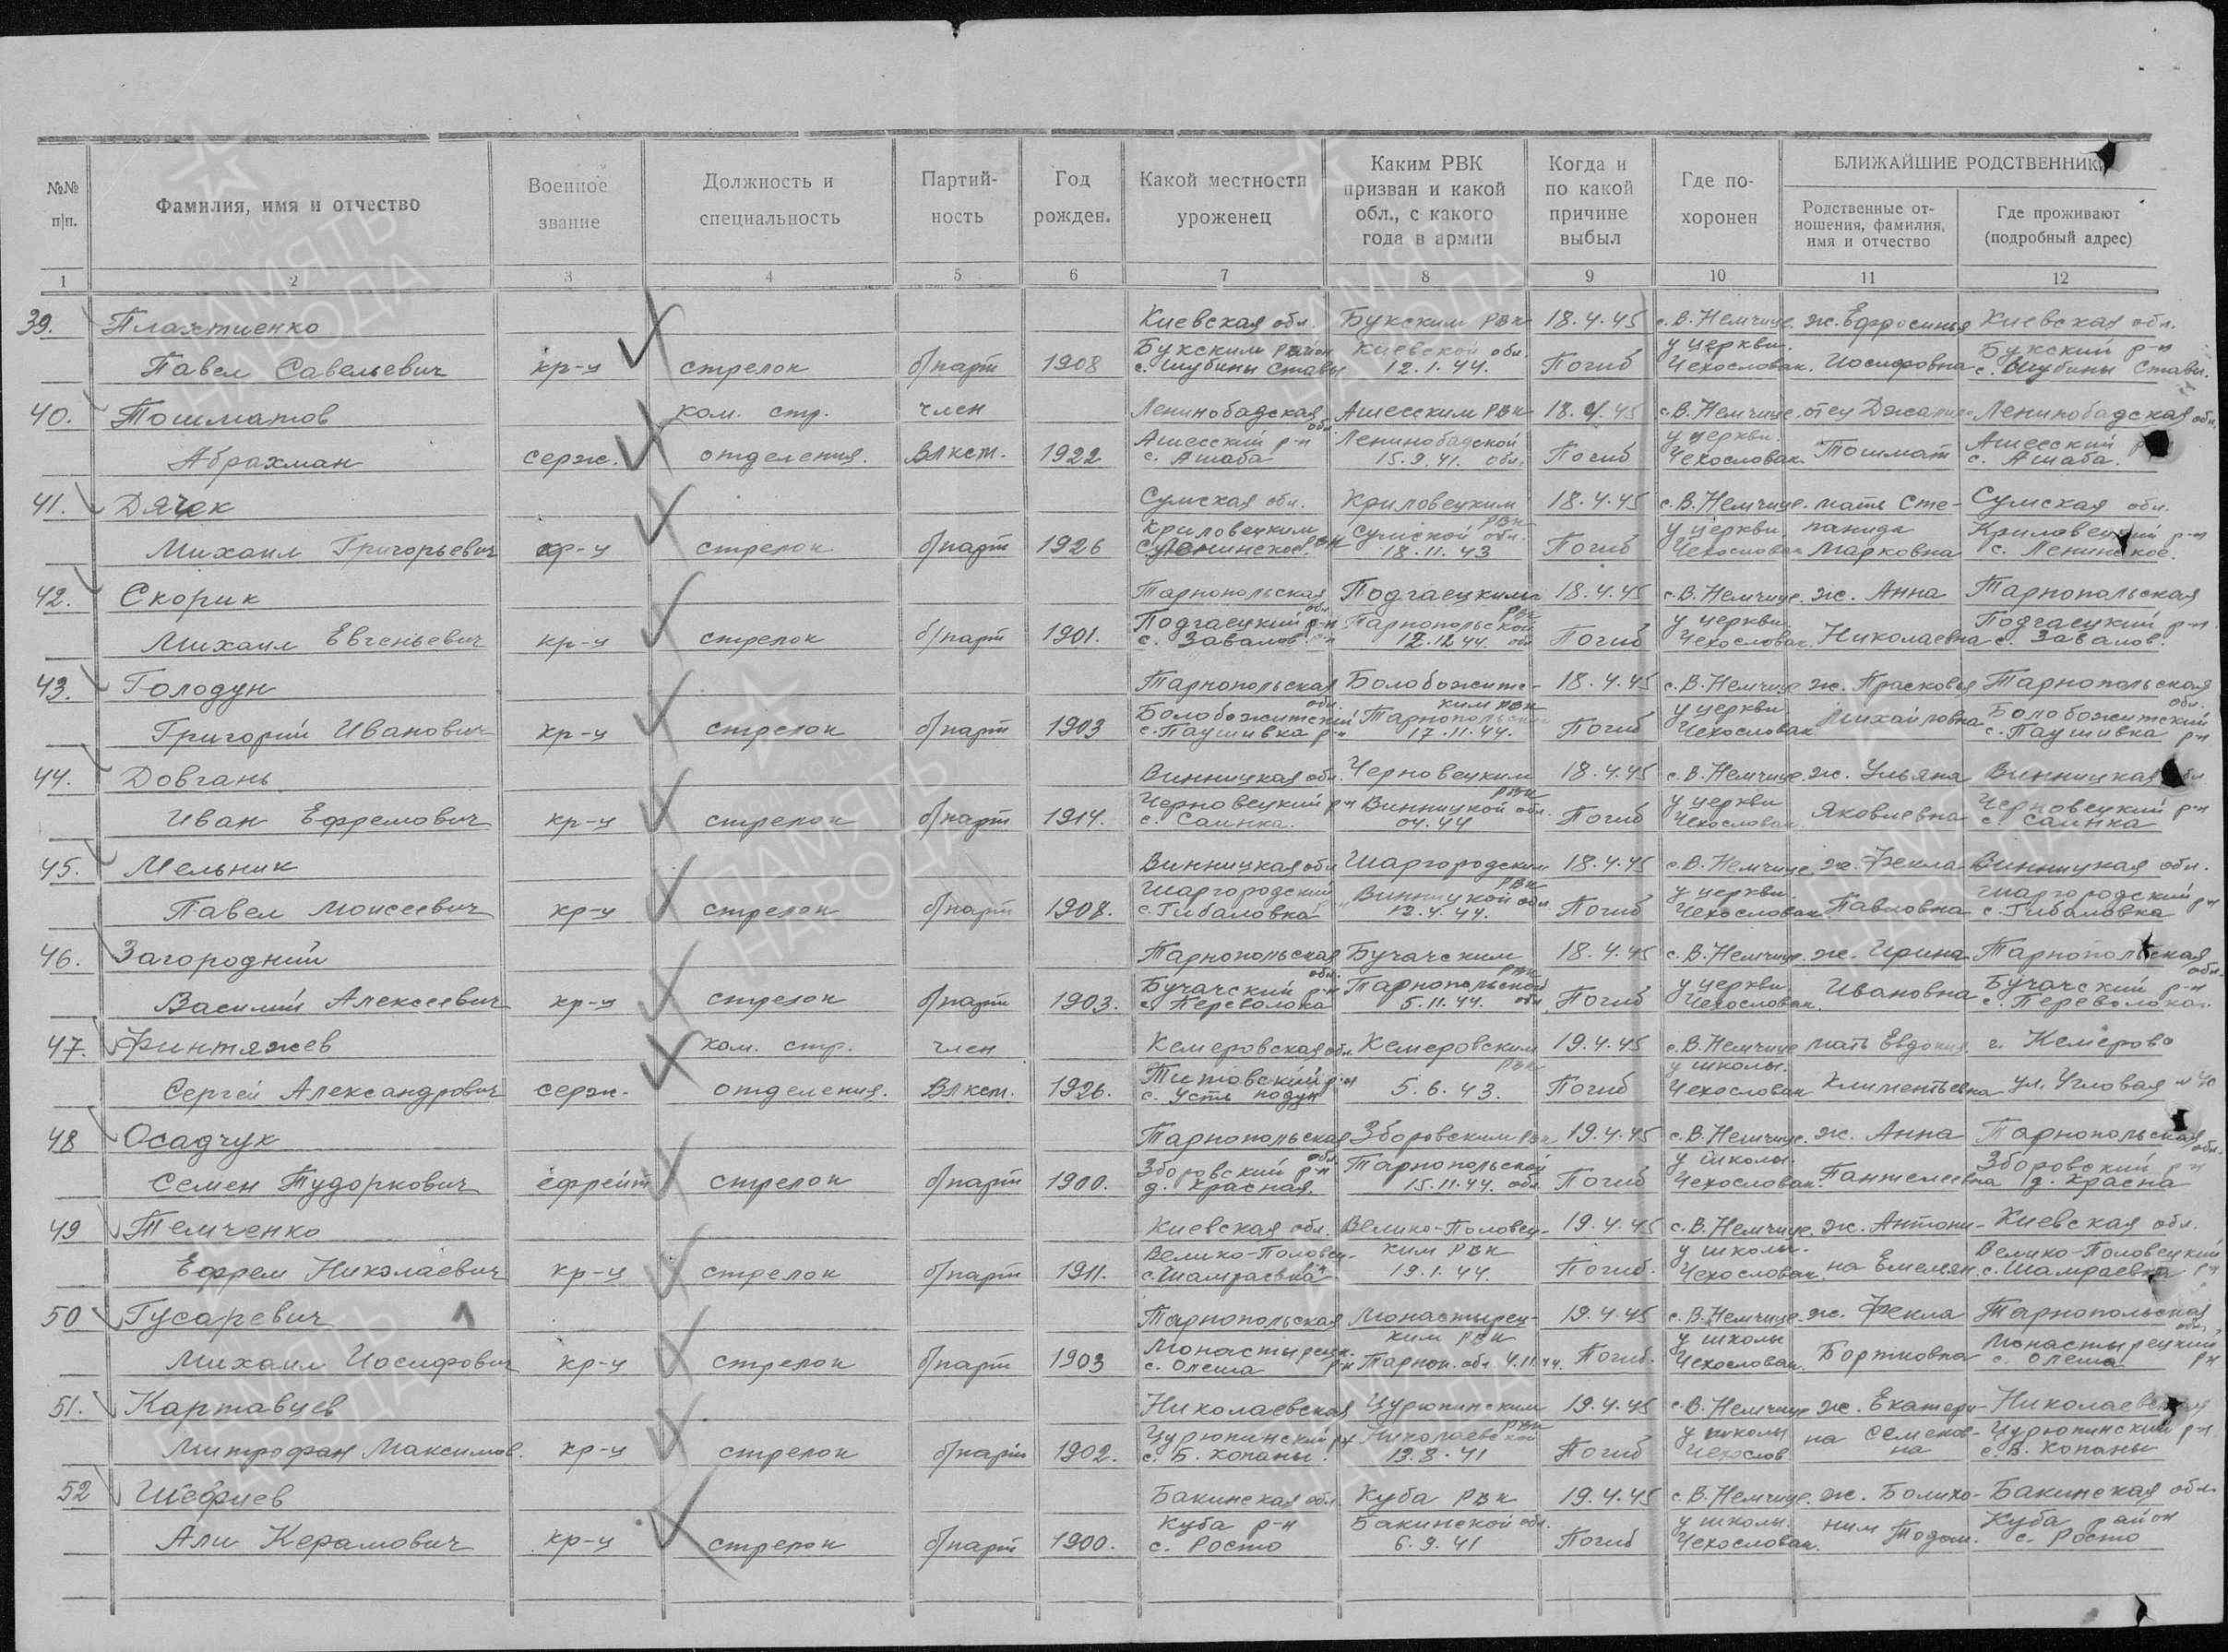 №№ п/п.
Фамилия, имя и отчество
Военное звание
Должность и специальность
Партий-ность
Год рожден.
Какой местности уроженец
Каким РВК призван и какой обл., с какого года в армии
Когда и по какой причине выбыл
Где по-хоронен
БЛИЖАЙШИЕ РОДСТВЕННИКИ
Родственные от-ношения, фамилия, имя и отчество
Где проживают (подробный адрес)
1 2 3 4 5 6 7 8 9 10 11 12
39. Плахтиенко Киевская обл. Букским РВК 18.4.45 с. В. Немчице ж. Ефросинья Киевская обл.
Павел Савельевич кр-ц стрелок б/парт 1908 Букским район с. Шубины Ставы Киевской обл. 12.1.44. Погиб у церкви. Чехословак. Иосифовна Букский р-н с. Шубины Ставы.
40. Тошматов ком. стр. член Ленинобадская обл. Ашесским РВК 18.4.45 с. В. Немчице отец Ленинобадская обл.
Абрахман серж. отделения. ВЛКСМ. 1922 Ашесский р-н с. Ашаба Ленинобадской обл. 15.9.41. Погиб у церкви. Чехословак. Тошмат Ашесский с. Ашаба.
41. Дячек Сумская обл. Криловецким РВК 18.4.45 с. В. Немчице мать Сте-
Сумская обл.
Михаил Григорьевич кр-ц стрелок б/парт 1926 Криловецким с. Ленинское Сумской обл. 18.11.43 Погиб у церкви Чехословак панида Марковна Криловецкий р-н с. Ленинское.
42. Скорик Тарнопольская обл. Подгаецким РВК 18.4.45 с. В. Немчице ж. Анна Тарнопольская
Михаил Евгеньевич кр-ц стрелок б/парт 1901. Подгаецкий р-н с. Завалов Тарнопольской обл 12.12.44. Погиб у церкви. Чехословак. Николаевна Подгаецкий р-н с. Завалов.
43. Голодун Тарнопольская обл. Болобожитс-ким РВК 18.4.45 с. В. Немчице ж. Прасковья Тарнопольская обл.
Григорий Иванович кр-ц стрелок б/парт 1903 Болобожитский р-н с. Паушивка Тарнопольской 17.11.44. Погиб у церкви. Чехословак Михайловна Болобожитский р-н с. Паушивка
44. Довгань Винницкая обл. Черновецким РВК 18.4.45 с. В. Немчице ж. Ульяна Винницкая обл
Иван Ефремович кр-ц стрелок б/парт 1914. Черновецкий р-н с. Саинка. Винницкой обл. 04.44 Погиб у церкви Чехословак. Яковлевна Черновецкий р-н с. Саинка
45. Мельник Винницкая обл Шаргородским РВК 18.4.45 с. В. Немчице ж. Фекла Винницкая обл.
Павел Моисеевич кр-ц стрелок б/парт 1908. Шаргородский с. Гибаловка Винницкой обл 12.4.44. Погиб у церкви. Чехословак Павловна Шаргородский р-н с. Гибаловка
46. Загородний Тарнопольская обл. Бучачским РВК 18.4.45 с. В. Немчице ж. Ирина Тарнопольская обл.
Василий Алексеевич кр-ц стрелок б/парт 1903. Бучачский р-н с. Переволока Тарнопольской обл 5.11.44. Погиб у церкви Чехословак. Ивановна Бучачский р-н с. Переволока.
47. Финтяжев ком. стр. член Кемеровская обл. Кемеровским РВК 19.4.45 с. В. Немчице мать Евдокия г. Кемерово
Сергей Александрович серж. отделения. ВЛКСМ. 1926. Титовский р-н с. Усть 5.6.43. Погиб у школы. Чехословак Климентьевна ул. Угловая
48 Осадчук Тарнопольская обл. Зборовским РВК 19.4.45 с. В. Немчице. ж. Анна Тарнопольская обл.
Семен Тудоркович ефрейт стрелок б/парт 1900. Зборовский р-н д. Красная. Тарнопольской обл 15.11.44. Погиб у школы. Чехословак. Пантелеевна Зборовский р-н д. Красна
49 Темченко Киевская обл. Велико-Половец-ким РВК 19.4.45 с. В. Немчице. ж. Антони-
Киевская обл.
Ефрем Николаевич кр-ц стрелок б/парт 1911. Велико-Половец-
с. Шамраевка 19.1.44. Погиб. у школы. Чехословак. на Емельян. Велико-Половецкий р-н с. Шамраевка
50 Гусаревич Тарнопольская Монастырец-ким РВК 19.4.45 с. В. Немчице. ж. Фекла Тарнопольская обл,
Михаил Иосифович кр-ц стрелок б/парт 1903 Монастырецк. р-н с. Олеша Тарноп. обл. 4.11.44. Погиб. у школы Чехословак. Бортковна Монастырецкий р-н с. Олеша
51. Картавцев Николаевская Цурюпинским РВК 19.4.45 с. В. Немчице ж. Екатери-
Николаевская
Митрофан Максимов. кр-ц стрелок б/парт 1902. Цурюпинский р-н с. Б. Копаны. Николаевской 13.8.41 Погиб у школы Чехослов на Семенов-на Цурюпинский р-н с. Б. Копаны
52 Шефиев Бакинская обл Куба РВК 19.4.45 с. В. Немчице. ж. Бакинская обл.
Али Керамович кр-ц стрелок б/парт 1900. Куба р-н с. Росто Бакинской обл. 6.9.41 Погиб у школы. Чехословак. Куба район с. Росто
ПАМЯТЬ НАРОДА